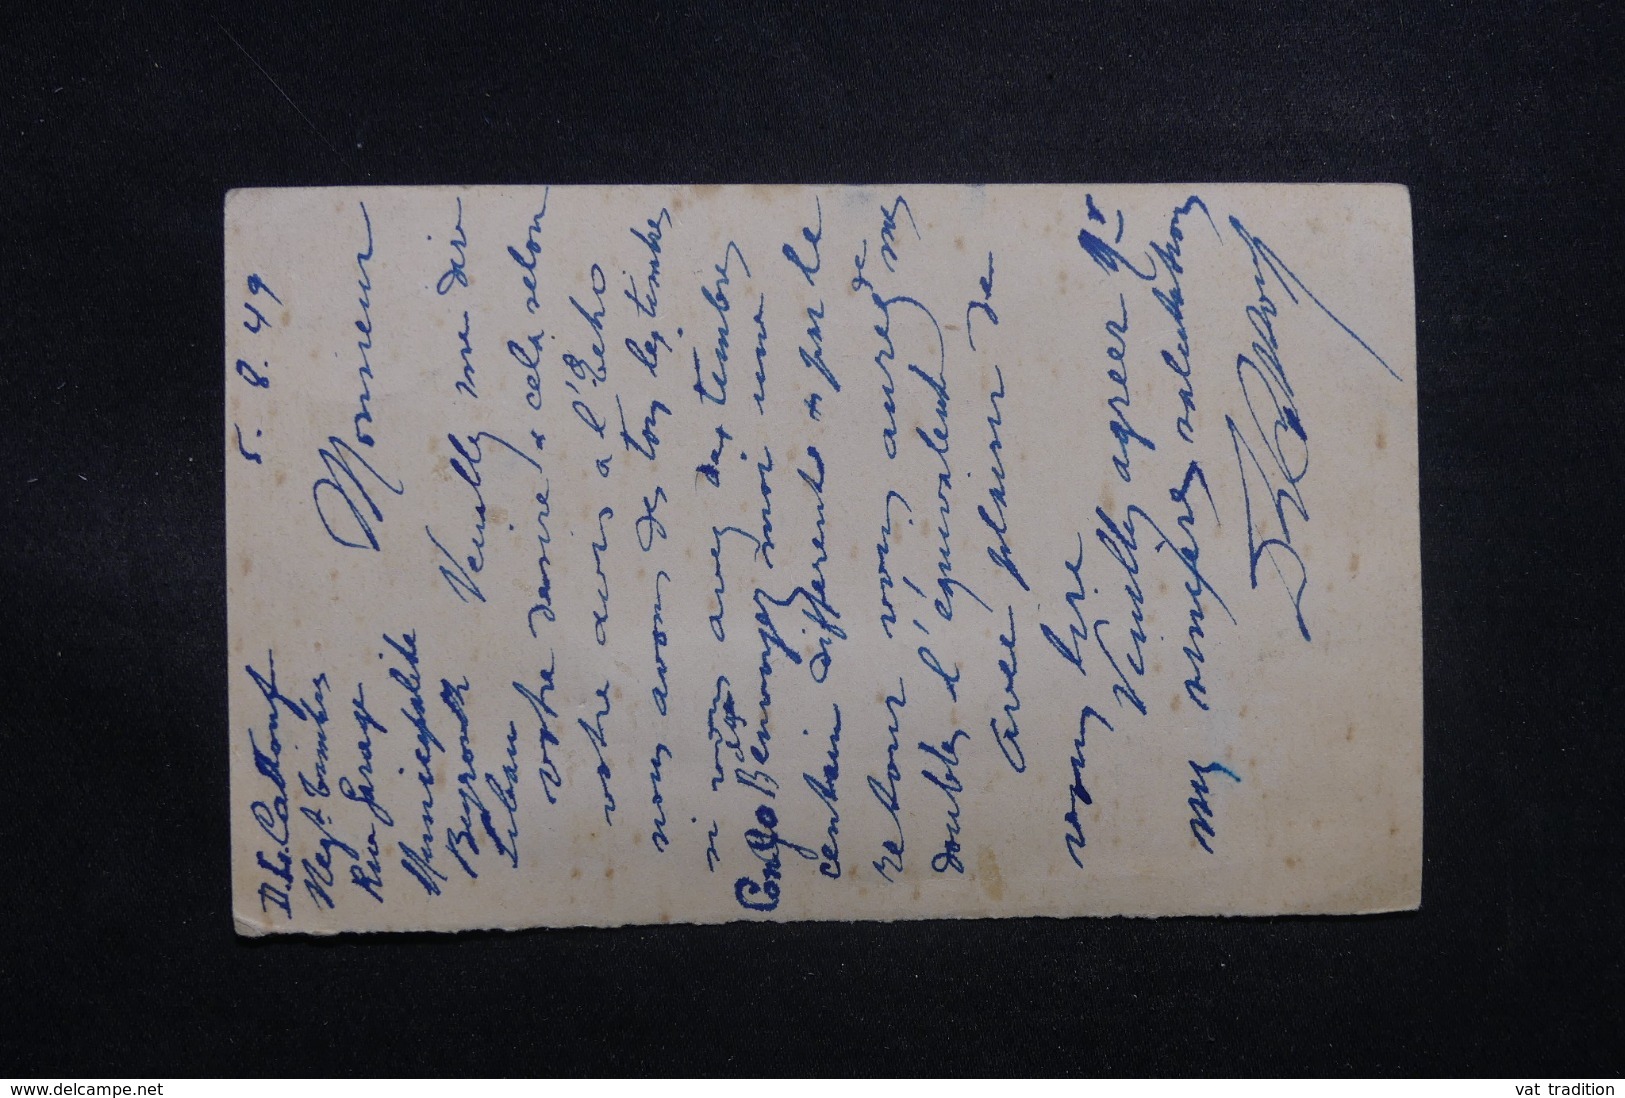 5. 8. 49
Negt. timbres
Rue Garage
Municipalité
Beyrouth
Liban
Monsieur
Veuillez me dire
votre desire & cela selon
votre avis a l'Echo
nous avons de tous les timbres
si vous avez des timbres
Congo Belge envoyez moi une
centain differents & par le
retour vous aurez de mes
doubles l'équivalent
avec plaisir de
vous lire
Veuillez agreer Mr
mes sincères salutation
www.delcampe.net
vat tradition